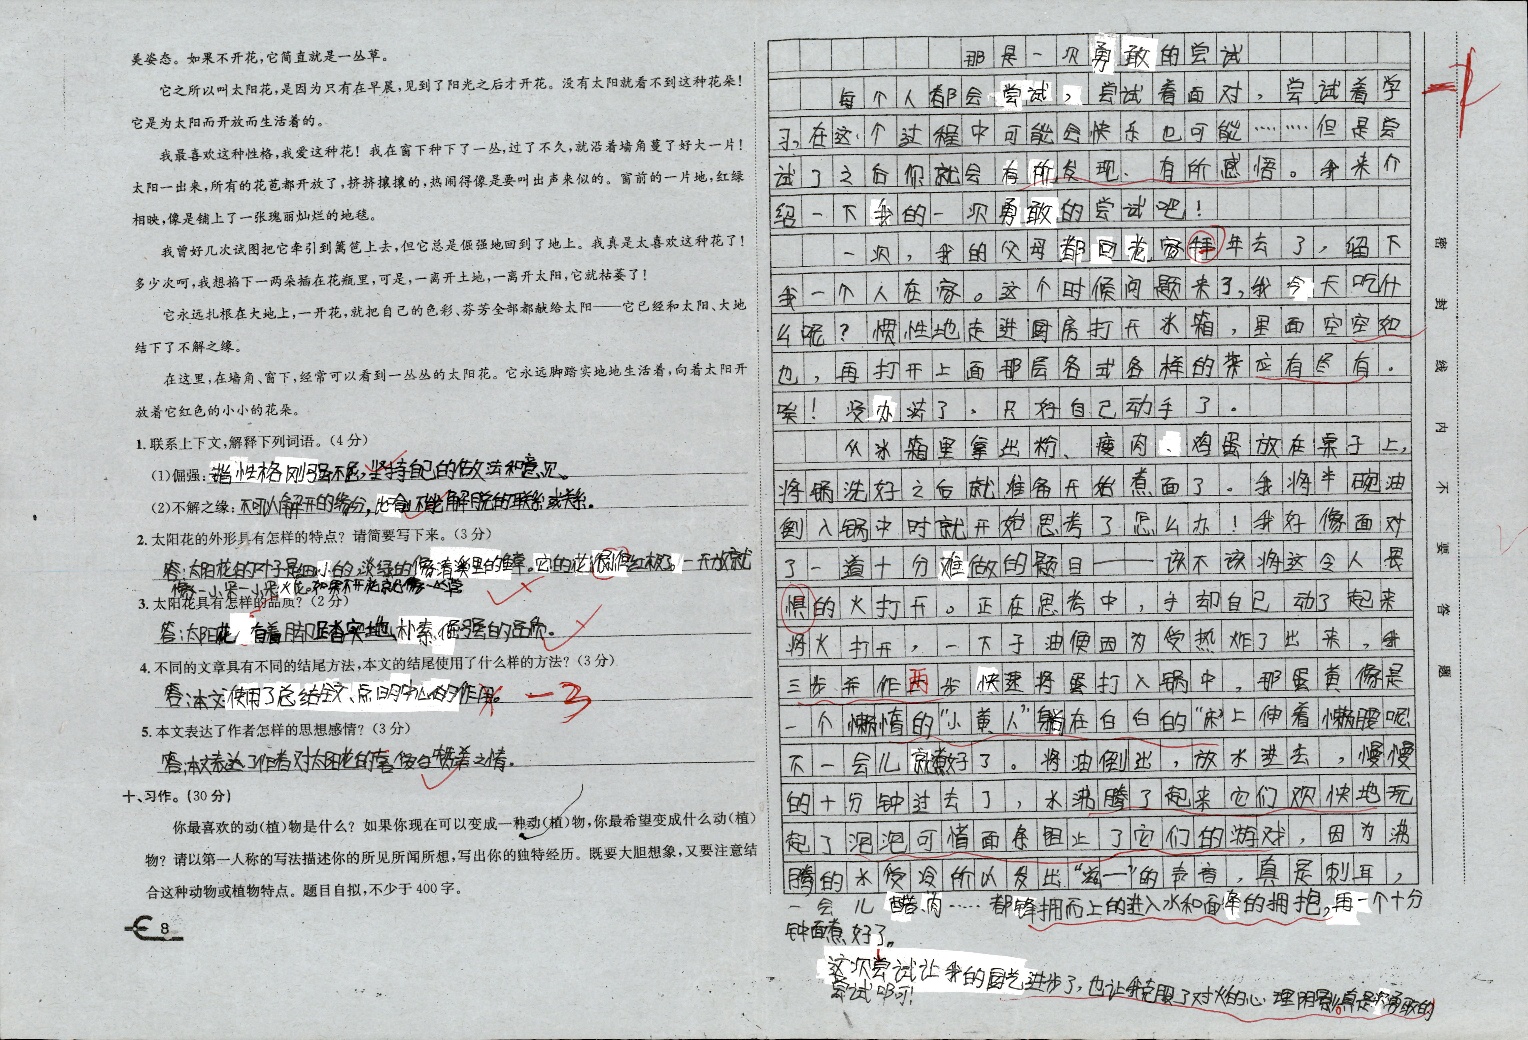 美姿态。如果不开花,它简直就是一丛草。
它之所以叫太阳花,是因为只有在早晨,见到了阳光之后才开花。没有太阳就看不到这种花朵!
它是为太阳而开放而生活着的。
我最喜欢这种性格,我爱这种花!我在窗下种下了一丛,过了不久,就沿着墙角蔓了好大一片!
太阳一出来,所有的花苞都开放了,挤挤攘攘的,热闹得像是要叫出声来似的。窗前的一片地,红绿
相映,像是铺上了一张瑰丽灿烂的地毯。
我曾好几次试图把它牵引到篱笆上去,但它总是倔强地回到了地上。我真是太喜欢这种花了!
多少次呵,我想掐下一两朵插在花瓶里,可是,一离开土地,一离开太阳,它就枯萎了!
它永远扎根在大地上,一开花,就把自己的色彩、芬芳全部都献给太阳——它已经和太阳、大地
结下了不解之缘。
在这里,在墙角、窗下,经常可以看到一丛丛的太阳花。它永远脚踏实地地生活着,向着太阳开
放着它红色的小小的花朵。
1.联系上下文,解释下列词语。(4分)
(1)倔强:指性格刚强不屈,坚持自己的做法和意见。
(2)不解之缘:不可以解开的缘分,比喻不能解脱的联系或关系。
2.太阳花的外形具有怎样的特点?请简要写下来。(3分)
答:太阳花的叶子是细小的,淡绿的
一开放就
像一小朵一小朵火花。如果不开花就像一丛草
3.太阳花具有怎样的品质?(2分)
答:太阳花有着脚踏实地、朴素、倔强的品质。
4.不同的文章具有不同的结尾方法,本文的结尾使用了什么样的方法?(3分)
答:本文使用了总结全文、点明中心的作用。 -3
5.本文表达了作者怎样的思想感情?(3分)
答:本文表达了作者对太阳花的喜爱之情。
十、习作。(30分)
你最喜欢的动(植)物是什么?如果你现在可以变成一种动(植)物,你最希望变成什么动(植)
物?请以第一人称的写法描述你的所见所闻所想,写出你的独特经历。既要大胆想象,又要注意结
合这种动物或植物特点。题目自拟,不少于400字。
8
那是一次勇敢的尝试
每个人都会尝试,尝试着面对,尝试着学
习,在这个过程中可能会快乐也可能……但是尝
试了之后你就会有所发现、有所感悟。我来介
绍一下我的一次勇敢的尝试吧!
一次,我的父母都回老家拜年去了,留下
我一个人在家。这个时候问题来了,我今天吃什
么呢?惯性地走进厨房打开冰箱,里面空空如
也,再打开上面那层各式各样的菜应有尽有。
唉!没办法了,只好自己动手了。
从冰箱里拿出粉、瘦肉、鸡蛋放在桌子上,
将锅洗好之后就准备开始煮面了。我将半碗油
倒入锅中时就开始思考了怎么办!我好像面对
了一道十分难做的题目——该不该将这令人畏
惧的火打开。正在思考中,手却自己动了起来
将火打开,一下子油便因为受热炸了出来,我
三步并作两步快速将蛋打入锅中,那蛋黄像是
一个懒惰的“小黄人”躺在白白的“床”上伸着懒腰呢
不一会儿就煮好了。将油倒出,放水进去,慢慢
的十分钟过去了,水沸腾了起来它们欢快地玩
起了泡泡可惜面条阻止了它们的游戏,因为沸
腾的水受冷所以发出“滋一”的声音,真是刺耳,
一会儿醋、肉……都蜂拥而上的进入水和面条的拥抱,再一个十分
钟面煮好了。
这次尝试让我的厨艺进步了,也让我克服了对火的心理阴影,真是次勇敢的
尝试啊!
密封线内不要答题